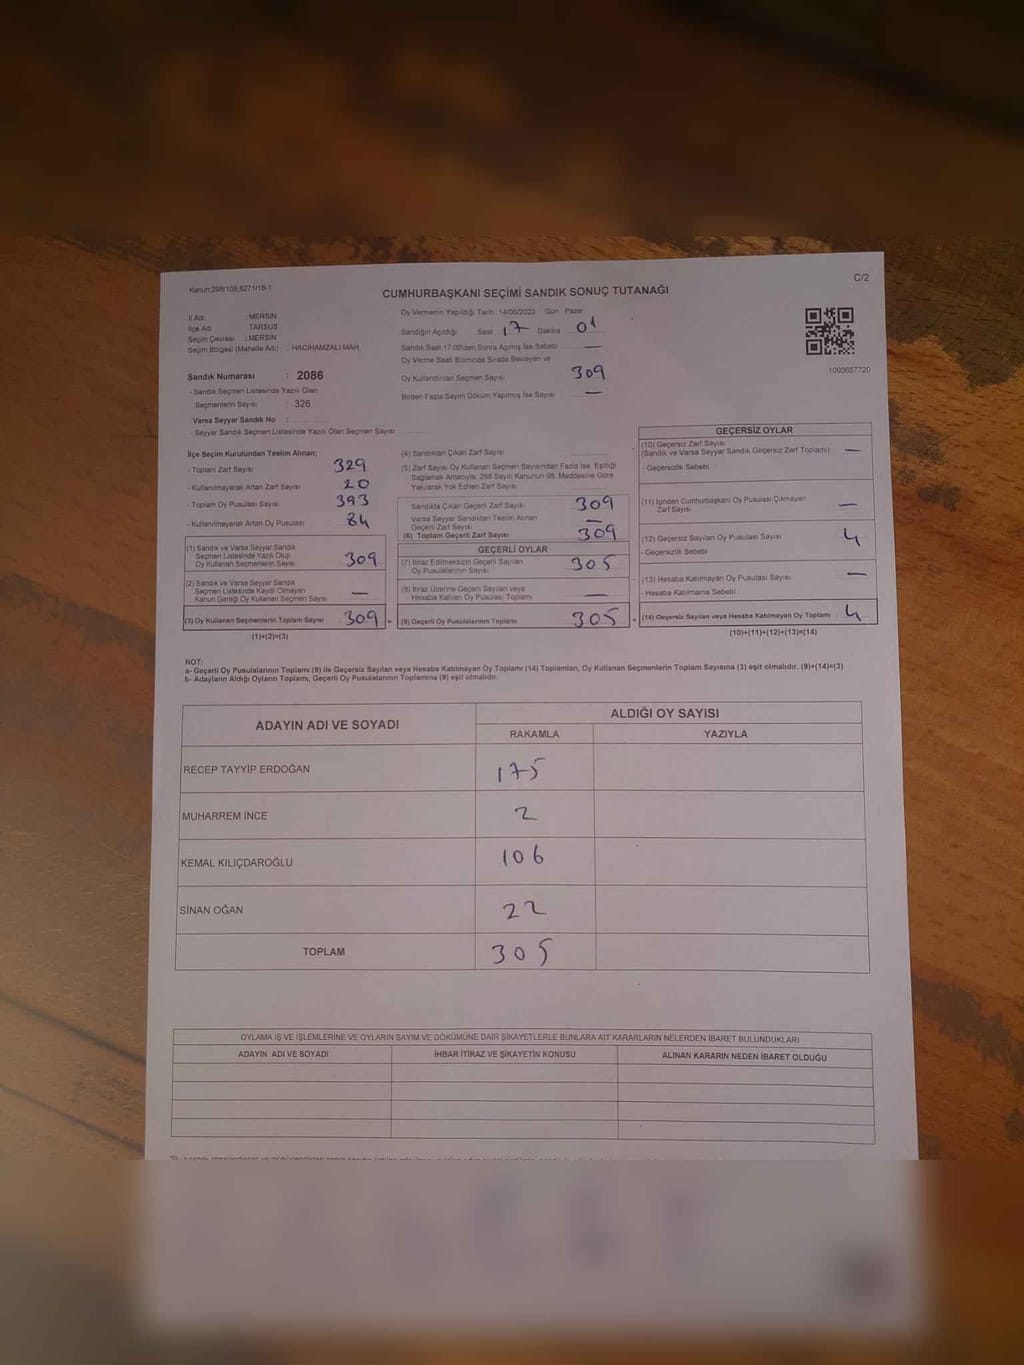 Kanun:298/105,6271/18-1
C/2
CUMHURBAŞKANI SEÇİMİ SANDIK SONUÇ TUTANAĞI
İl Adı : MERSİN
İlçe Adı : TARSUS
Seçim Çevresi : MERSİN
Seçim Bölgesi (Mahalle Adı) : HACIHAMZALI MAH.
Sandık Numarası : 2086
- Sandık Seçmen Listesinde Yazılı Olan
Seçmenlerin Sayısı : 326
Varsa Seyyar Sandık No :
- Seyyar Sandık Seçmen Listesinde Yazılı Olan Seçmen Sayısı
Oy Vermenin Yapıldığı Tarih: 14/05/2023 Gün: Pazar
Sandığın Açıldığı Saat 17 Dakika 01
Sandık Saat 17:00'den Sonra Açmış İse Sebebi —
Oy Verme Saati Bitiminde Sırada Bekleyen ve
Oy Kullandırılan Seçmen Sayısı 309
Birden Fazla Sayım Döküm Yapılmış İse Sayısı —
1093657720
İlçe Seçim Kurulundan Teslim Alınan;
- Toplam Zarf Sayısı 329
- Kullanılmayarak Artan Zarf Sayısı 20
- Toplam Oy Pusulası Sayısı 393
- Kullanılmayarak Artan Oy Pusulası 84
(1) Sandık ve Varsa Seyyar Sandık
Seçmen Listesinde Yazılı Olup
Oy Kullanan Seçmenlerin Sayısı 309
(2) Sandık ve Varsa Seyyar Sandık
Seçmen Listesinde Kayıtlı Olmayan
Kanun Gereği Oy Kullanan Seçmen Sayısı —
(3) Oy Kullanan Seçmenlerin Toplam Sayısı 309 =
(1)+(2)=(3)
(4) Sandıktan Çıkan Zarf Sayısı
(5) Zarf Sayısı Oy Kullanan Seçmen Sayısından Fazla İse, Eşitliği
Sağlamak Amacıyla, 298 Sayılı Kanunun 98. Maddesine Göre
Yakılarak Yok Edilen Zarf Sayısı
Sandıkta Çıkan Geçerli Zarf Sayısı 309
Varsa Seyyar Sandıktan Teslim Alınan
Geçerli Zarf Sayısı —
(6) Toplam Geçerli Zarf Sayısı 309
GEÇERLİ OYLAR
(7) İtiraz Edilmeksizin Geçerli Sayılan
Oy Pusulalarının Sayısı 305
(8) İtiraz Üzerine Geçerli Sayılan veya
Hesaba Katılan Oy Pusulası Toplamı —
(9) Geçerli Oy Pusulalarının Toplamı 305 +
GEÇERSİZ OYLAR
(10) Geçersiz Zarf Sayısı
(Sandık ve Varsa Seyyar Sandık Geçersiz Zarf Toplamı) —
- Geçersizlik Sebebi
(11) İçinden Cumhurbaşkanı Oy Pusulası Çıkmayan
Zarf Sayısı —
(12) Geçersiz Sayılan Oy Pusulası Sayısı 4
- Geçersizlik Sebebi
(13) Hesaba Katılmayan Oy Pusulası Sayısı —
- Hesaba Katılmama Sebebi
(14) Geçersiz Sayılan veya Hesaba Katılmayan Oy Toplamı 4
(10)+(11)+(12)+(13)=(14)
NOT:
a- Geçerli Oy Pusulalarının Toplamı (9) ile Geçersiz Sayılan veya Hesaba Katılmayan Oy Toplamı (14) Toplamları, Oy Kullanan Seçmenlerin Toplam Sayısına (3) eşit olmalıdır. (9)+(14)=(3)
b- Adayların Aldığı Oyların Toplamı, Geçerli Oy Pusulalarının Toplamına (9) eşit olmalıdır.
ADAYIN ADI VE SOYADI
ALDIĞI OY SAYISI
RAKAMLA YAZIYLA
RECEP TAYYİP ERDOĞAN 175
MUHARREM İNCE 2
KEMAL KILIÇDAROĞLU 106
SİNAN OĞAN 22
TOPLAM 305
OYLAMA İŞ VE İŞLEMLERİNE VE OYLARIN SAYIM VE DÖKÜMÜNE DAİR ŞİKAYETLERLE BUNLARA AİT KARARLARIN NELERDEN İBARET BULUNDUKLARI
ADAYIN ADI VE SOYADI İHBAR İTİRAZ VE ŞİKAYETİN KONUSU ALINAN KARARIN NEDEN İBARET OLDUĞU